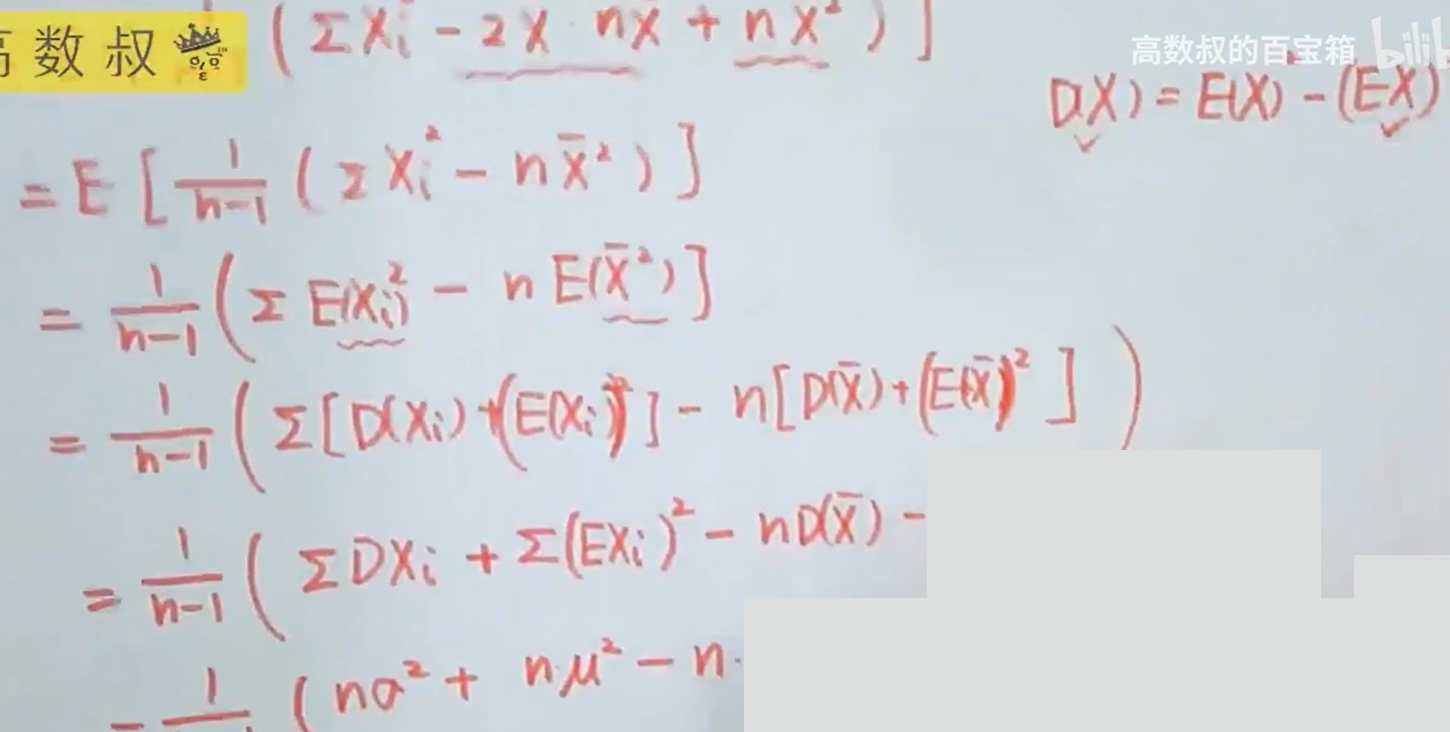 高数叔
(ΣXi² - 2X̄·nX̄ + nX̄²)]
高数叔的百宝箱 bilibili
D(X) = E(X) - (EX)
= E[1/(n-1) (ΣXi² - nX̄²)]
= 1/(n-1) (ΣE(Xi)² - nE(X̄²)]
= 1/(n-1) (Σ[D(Xi) + (E(Xi))²] - n[D(X̄) + (E(X̄))²])
= 1/(n-1) (ΣDXi + Σ(EXi)² - nD(X̄) -
= 1/(n-1) (nσ² + n·μ² - n·